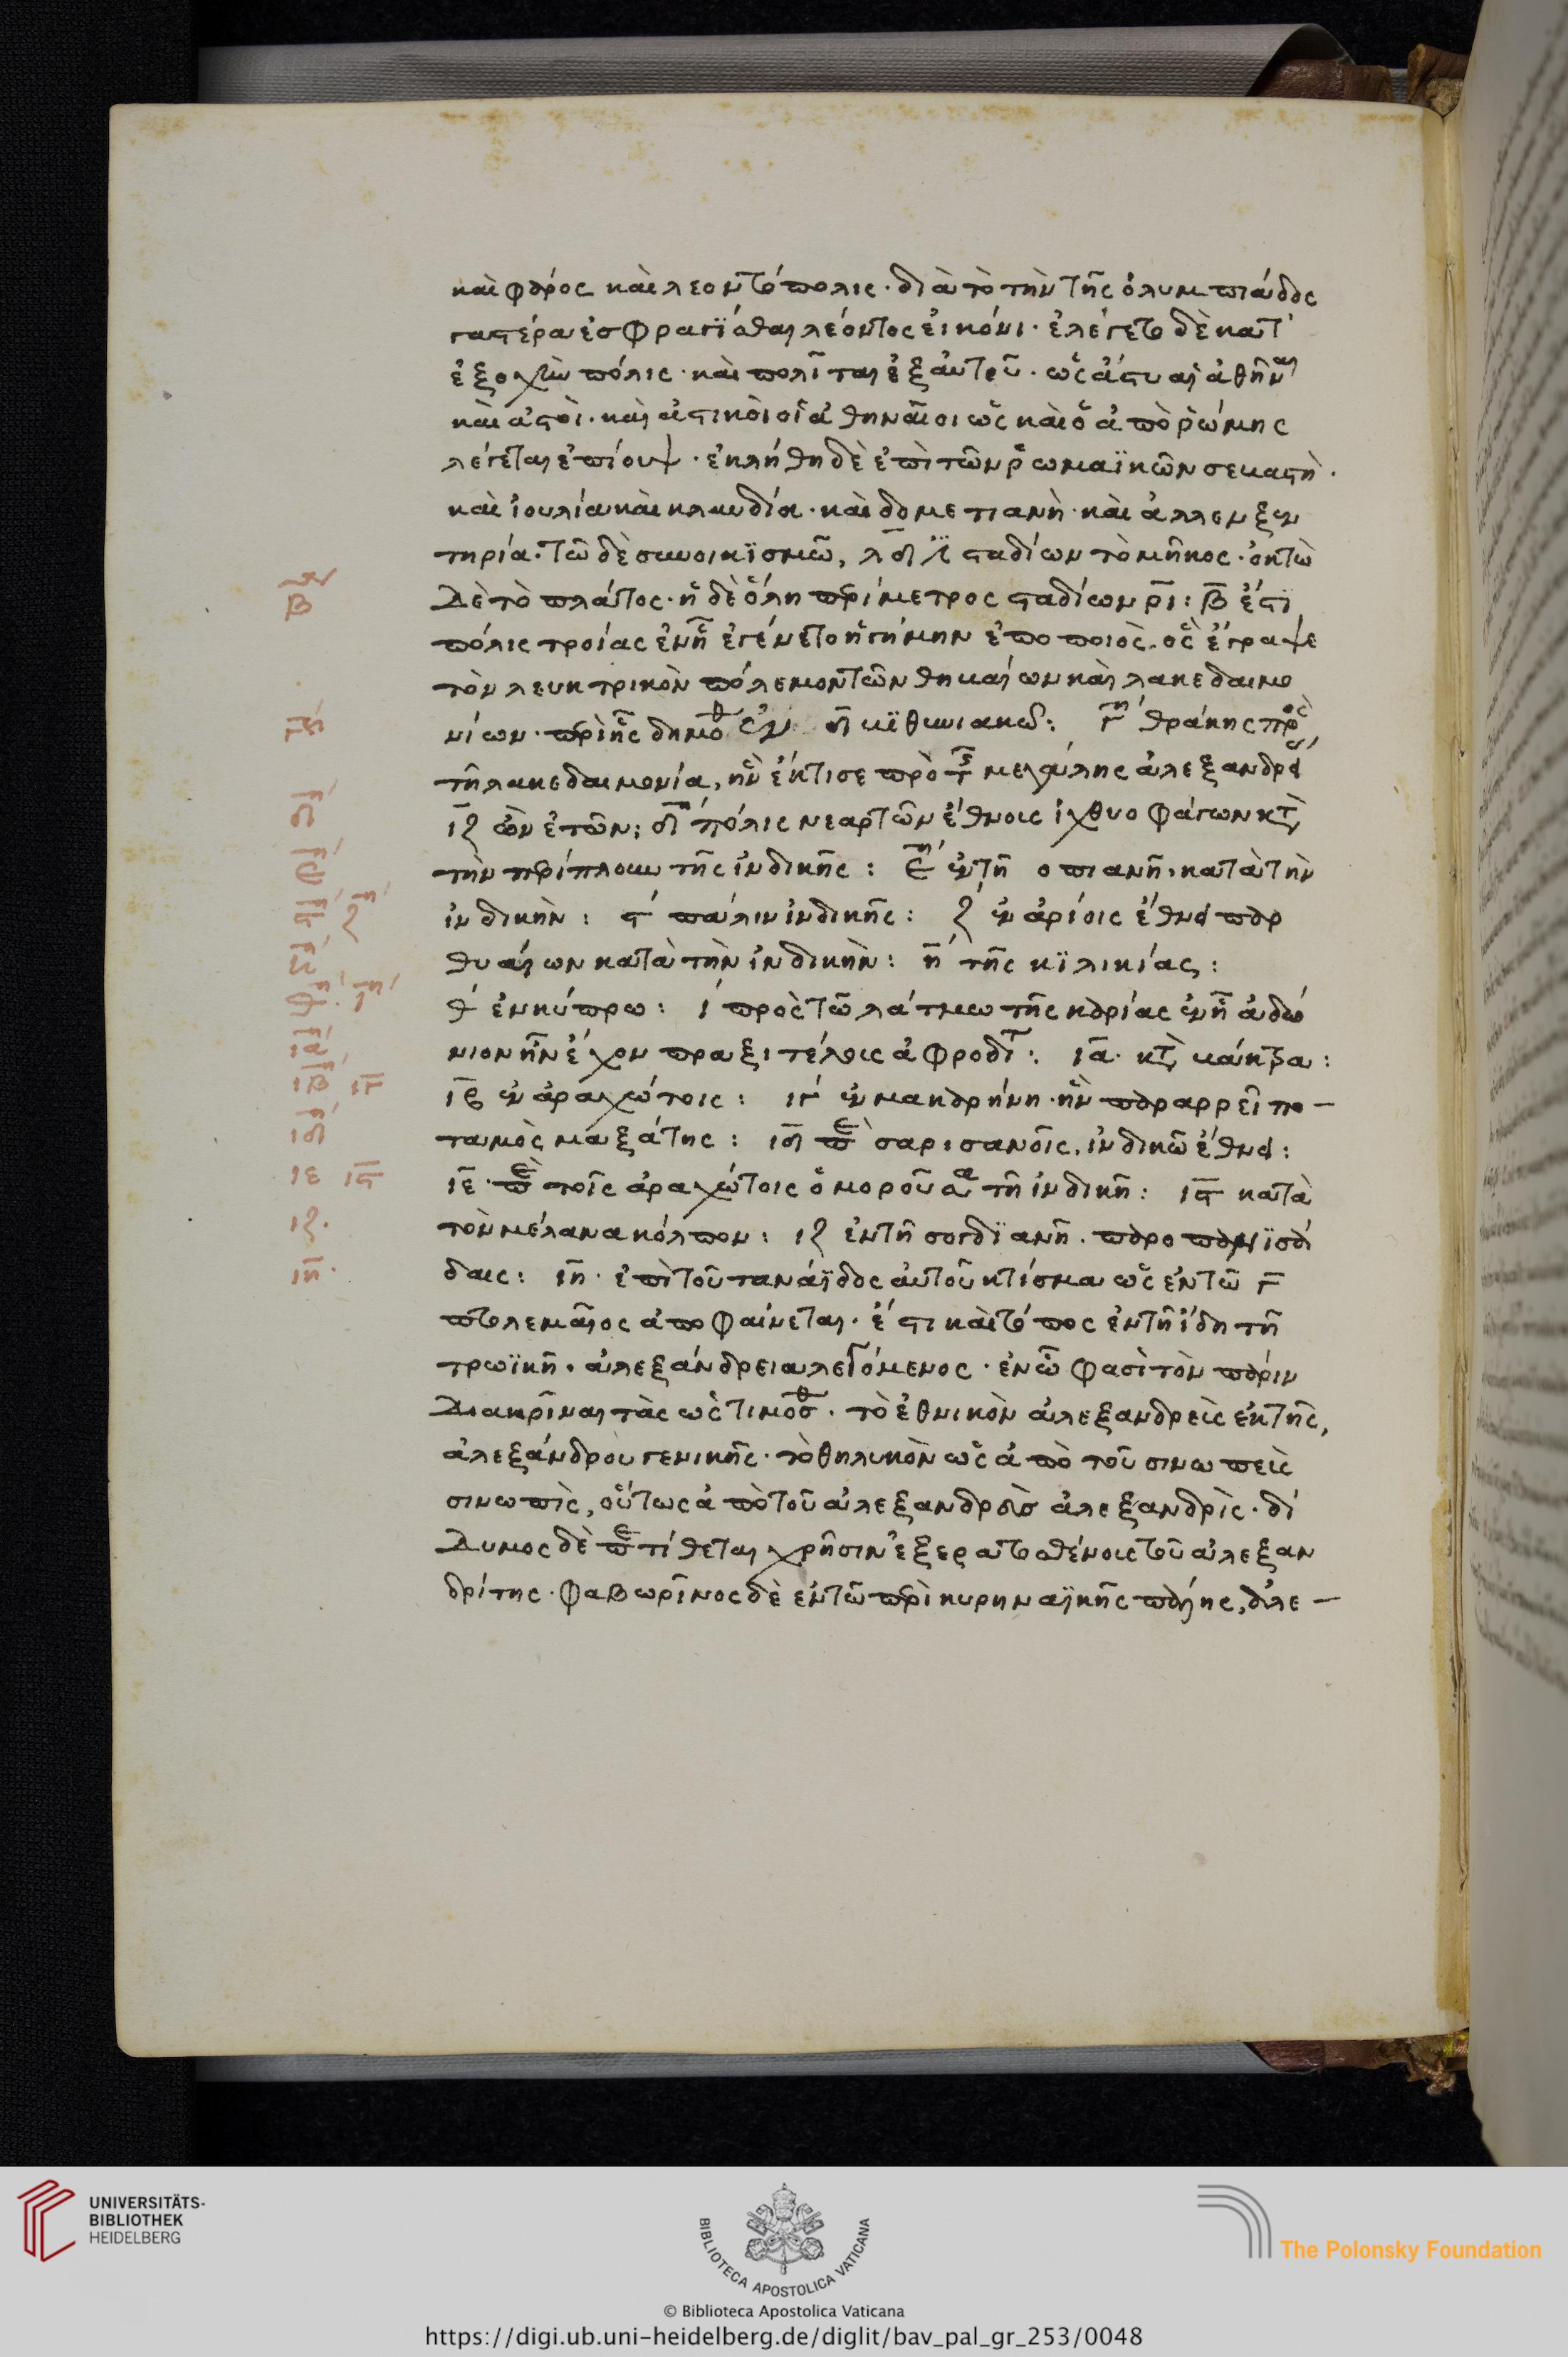 καὶ φάρος καὶ λεοντόπολις · διὰ τὸ τὴν τῆς ὀλυμπιάδος
γαστέρα ἐσφραγϊσθαι λέοντος εἰκόνι · ἐλέγετο δὲ κατ'
ἐξοχὴν πόλις · καὶ πολῖται ἐξ αὐτοῦ · ὡς ἄστυ αἱ ἀθῆναι
καὶ ἀστοὶ · καὶ ἀστικοὶ οἱ ἀθηναῖοι ὡς καὶ ὁ ἀπὸ ῥώμης
λέγεται
ἐκλήθη δὲ ἐπὶ τῶν ῥωμαϊκῶν σεβαστὴ ·
καὶ ἰουλία καὶ κλαυδία · καὶ δομετιανὴ · καὶ ἀλλεμξην
τηρία. τῶ δὲ συνοικϊσμῶ, λδ ϊ σταδίων τὸ μῆκος · ὀκτὼ
δὲ τὸ πλάτος · ἡ δὲ ὅλη περίμετρος σταδίων ρι : β ἐστϊ
πόλις τροίας ἐν ἧ ἐγένετο ἡγήμην ἐποποιὸς · ὃς ἔγραψε
τὸν λευκτρικὸν πόλεμον τῶν θηβαίων καὶ λακεδαιμο
νίων · περὶ ἧς δημοσθ ἐν δ βϊθυνιακῶ : γ θράκης πρὸς
τῆ λακεδαιμονία, ἣν ἔκτισε πρὸ τῆς μεγάλης ἀλεξανδρεί
ιζ ὢν ἐτῶν : δ πόλις νεαρτῶν ἔθνοις ἰχθυοφάγων κτ
τὴν περίπλουν τῆς ἰνδικῆς : ε ἐν τῆ οπιανῆ · κατὰ τὴν
ἰνδικὴν : ς πάλιν ἰνδικῆς : ζ ἐν ἀρίοις ἔθνει παρ
θυαίων κατὰ τὴν ἰνδικὴν : η τῆς κϊλικίας :
θ ἐν κύπρω : ι πρὸς τῶ λάτμω τῆς καρίας ἐν ἧ ἀδώ
νιον ἦν ἔχον πραξιτέλοις ἀφροδίτ : ια · κτ βάκτρα :
ιβ ἐν ἀραχώτοις : ιγ ἐν μακαρήνη · ἣν παραρρεῖ πο -
ταμὸς μαξάτης : ιδ παρὰ σαρισανοῖς, ἰνδικῶ ἔθνει :
ιε · παρὰ τοῖς ἀραχώτοις ὁμοροῦσα τῆ ἰνδικῆ : ις κατὰ
τὸν μέλανα κόλπον : ιζ ἐν τῆ σογδϊανῆ · παρο παμϊσά
δαις : ιη · ἐπὶ τοῦ ταναΐδος αὐτοῦ κτίσμα ὡς ἐν τῶ γ
πτολεμαῖος ἀποφαίνεται · ἔστι καὶ τόπος ἐν τῆ ἴδη τῆ
τρωϊκῆ · ἀλεξάνδρεια λεγόμενος · ἐν ὧ φασὶ τὸν πάριν
διακρῖναι τὰς ὡς τιμοσθ · τὸ ἐθνικὸν ἀλεξανδρεὶς ἐκ τῆς,
ἀλεξάνδρου γενικῆς · τὸ θηλυκὸν ὡς ἀπὸ τοῦ σινωπεὶς
σινωπὶς, οὕτως ἀπὸ τοῦ ἀλεξανδρεὶς ἀλεξανδρὶς · δί
δυμος δὲ παρατίθεται χρῆσιν ἐξ ερατοσθένοις τοῦ ἀλεξαν
δρίτης · φαβωρῖνος δὲ ἐν τῶ περὶ κυρηναϊκῆς πόλης, ἀλε -
β
γ
δ
ε
ς ζ
η
θ · ι
ια
ιβ ιγ
ιδ
ιε ις
ιζ ·
ιη ·
UNIVERSITÄTS-
BIBLIOTHEK
HEIDELBERG
BIBLIOTECA APOSTOLICA VATICANA
The Polonsky Foundation
© Biblioteca Apostolica Vaticana
https://digi.ub.uni-heidelberg.de/diglit/bav_pal_gr_253/0048